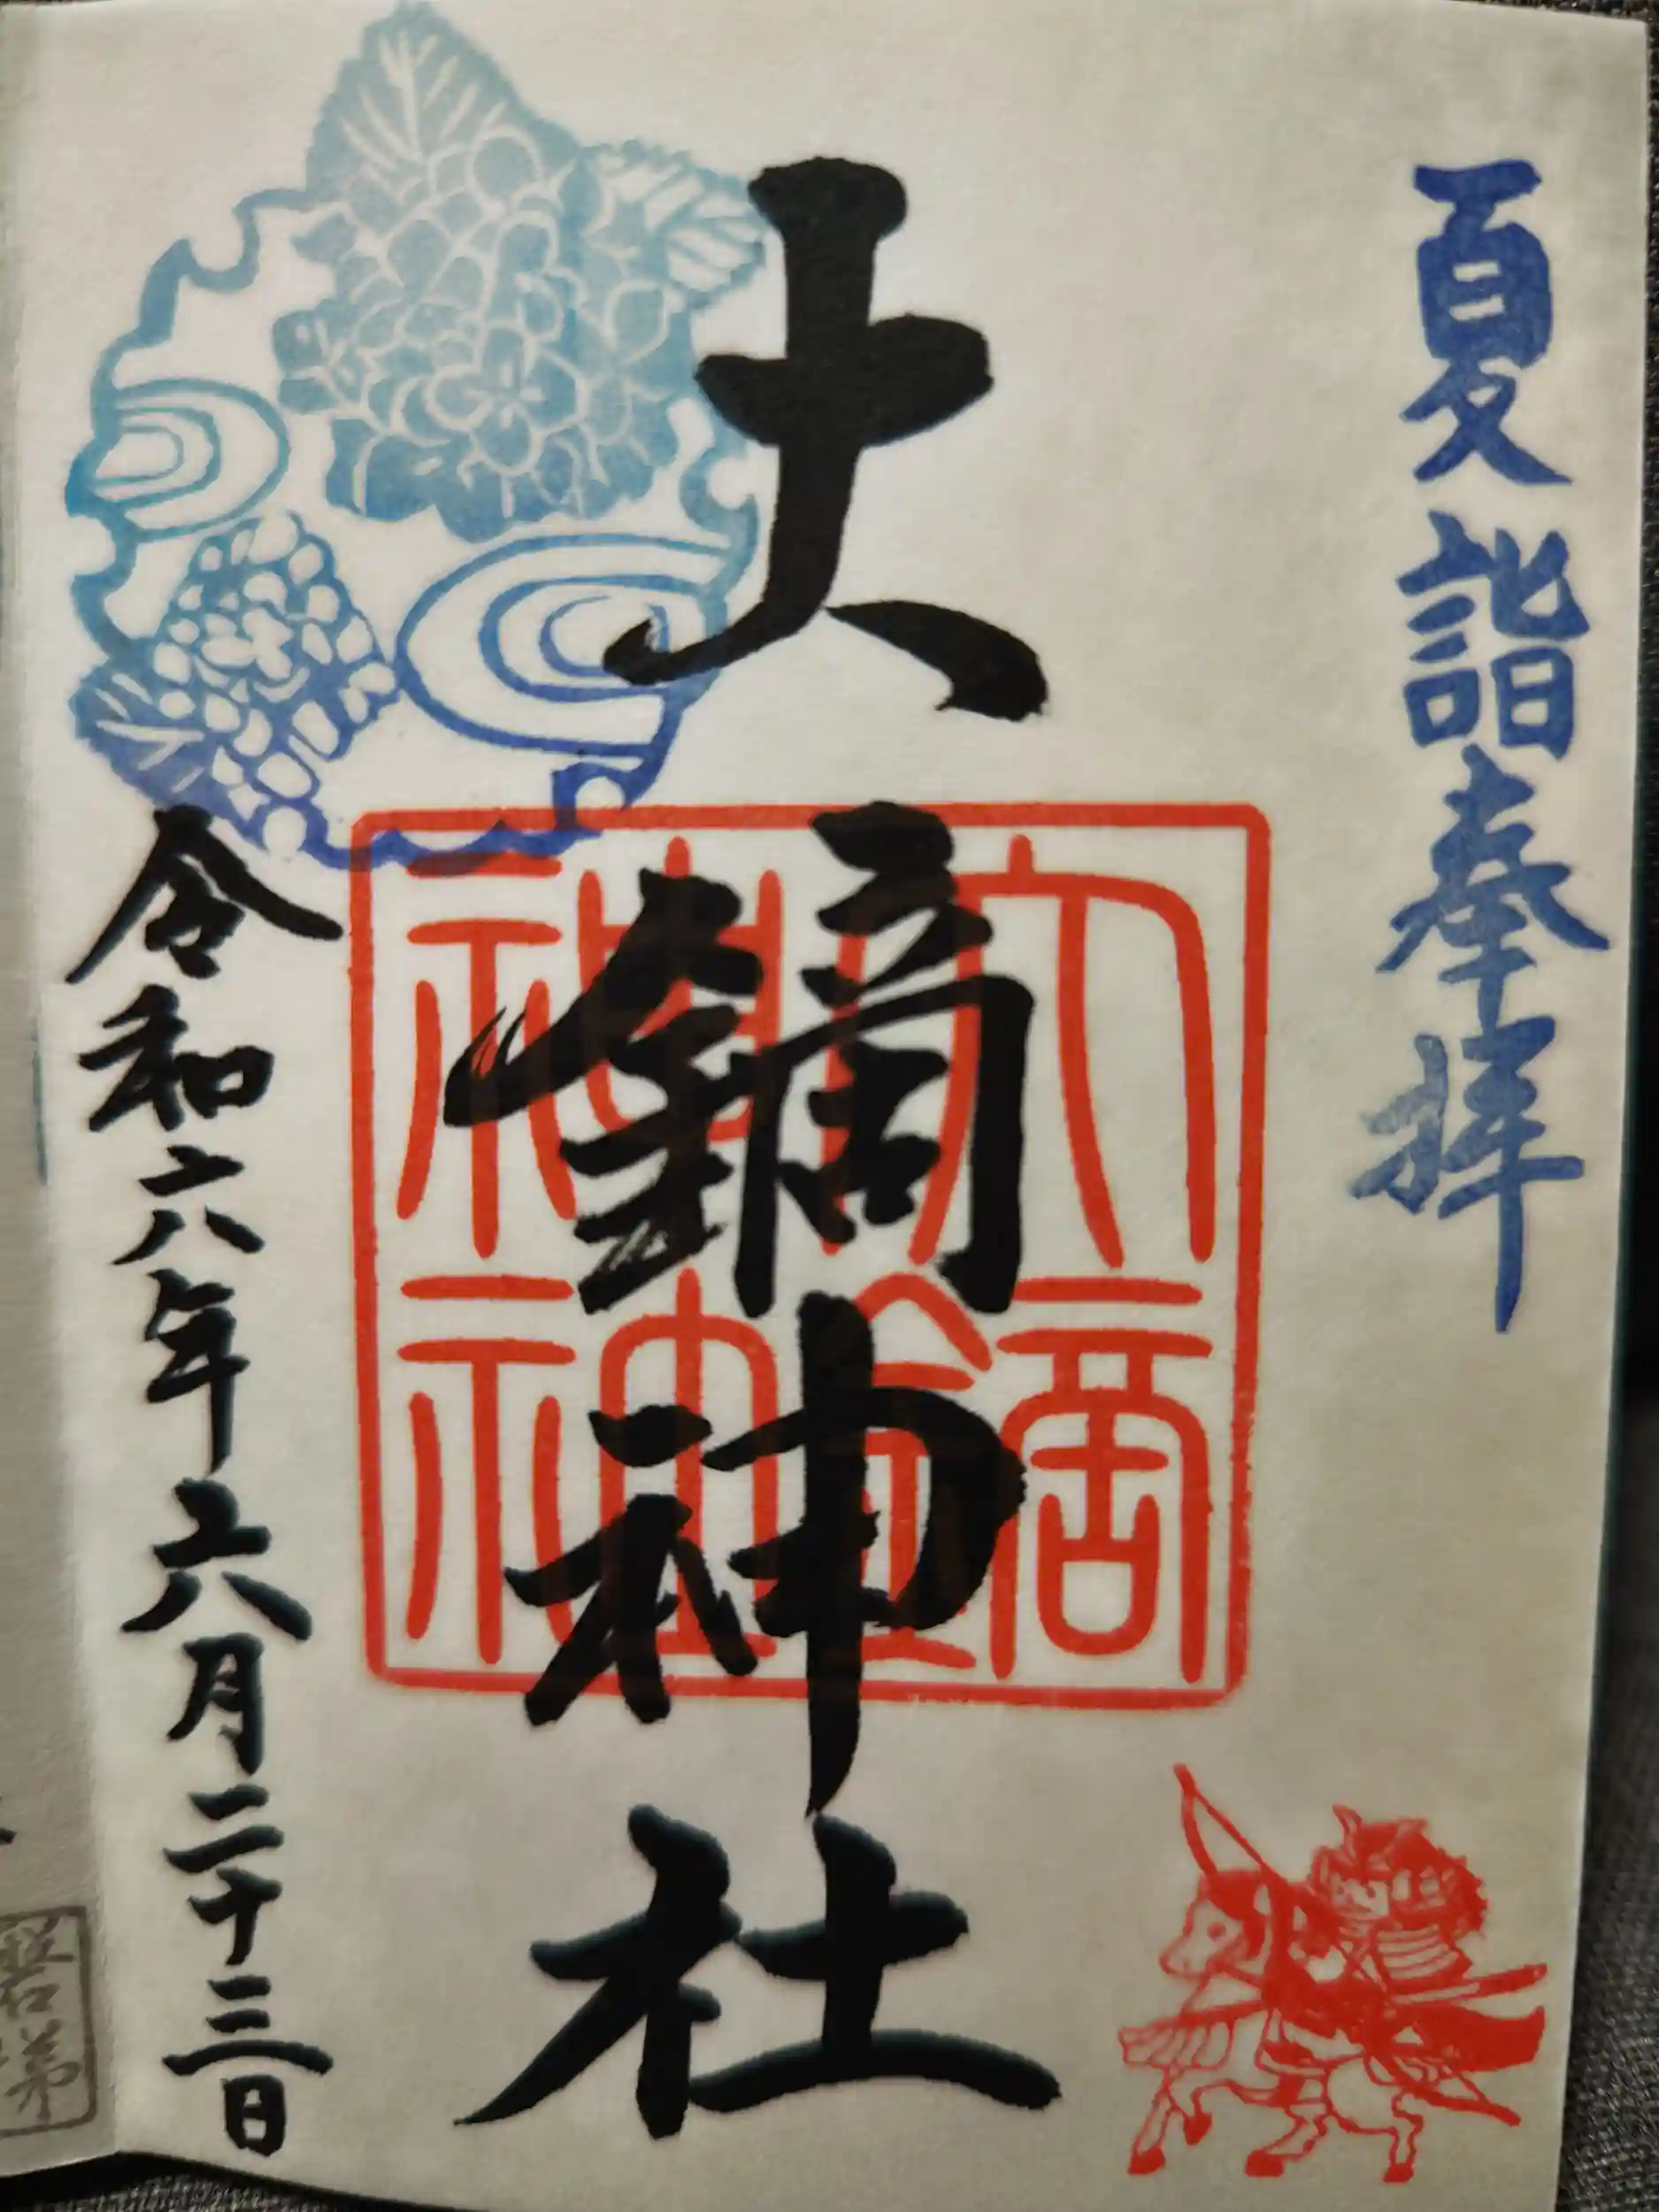 夏詣奉拝
大鏑神社
令和六年六月二十三日
大鏑
神社